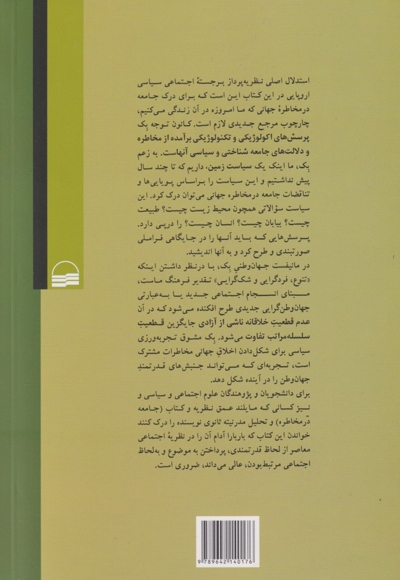 استدلال اصلی نظریه‌پرداز برجستهٔ اجتماعی سیاسی
اروپایی در این کتاب این است که برای درک جامعه
درمخاطرهٔ جهانی که ما امروزه در آن زندگی می‌کنیم،
چارچوب مرجع جدیدی لازم است. کانون توجه بِک
پرسش‌های اکولوژیکی و تکنولوژیکی برآمده از مخاطره
و دلالت‌های جامعه شناختی و سیاسی آنهاست. به زعم
بِک، ما اینک یک سیاست زمین، داریم که تا چند سال
پیش نداشتیم و این سیاست را براساس پویایی‌ها و
تناقضات جامعه درمخاطره جهانی می‌توان درک کرد. این
سیاست سؤالاتی همچون محیط زیست چیست؟ طبیعت
چیست؟ بیابان چیست؟ انسان چیست؟ را درپی دارد.
پرسش‌هایی که باید آنها را در جایگاهی فراملی
صورتبندی و طرح کرد و به آنها اندیشید.
در مانیفست جهان‌وطنیِ بِک، با درنظر داشتن اینکه
«تنوع، فردگرایی و شک‌گرایی» تقدیر فرهنگ ماست،
مبنای انسجام اجتماعی جدید یا به‌عبارتی
جهان‌وطن‌گرایی جدیدی طرح افکنده می‌شود که در آن
عدم قطعیت خلاقانه ناشی از آزادی جایگزین قطعیتِ
سلسله‌مراتب تفاوت می‌شود. بِک مشوق تجربه‌ورزی
سیاسی برای شکل‌دادن اخلاقِ جهانی مخاطرات مشترک
است، تجربه‌ای که می‌تواند جنبش‌های قدرتمندِ
جهان‌وطن را در آینده شکل دهد.
برای دانشجویان و پژوهندگان علوم اجتماعی و سیاسی و
نیز کسانی که مایلند عمق نظریه و کتاب (جامعه
درمخاطره) و تحلیل مدرنیته ثانوی نویسنده را درک کنند
خواندن این کتاب که باربارا آدام آن را در نظریهٔ اجتماعی
معاصر از لحاظ قدرتمندی، پرداختن به موضوع و به‌لحاظ
اجتماعی مرتبط‌بودن، عالی می‌داند، ضروری است.
9 789642 140176